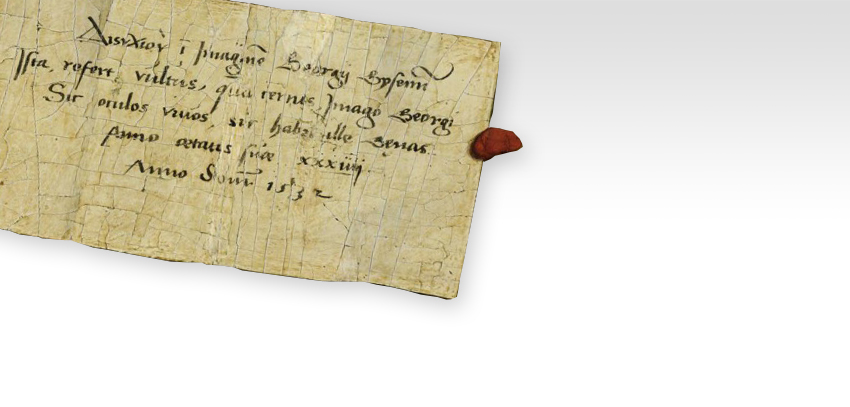 Διςυχιοὺ ī Imaginē Georgij Gysenii
Ista, refert vultus, quā cernis, Imago Georgi
Sic oculos vivos, sic habet ille genas
Anno ætatis suæ xxxiiij
Anno Dom̄ 1532